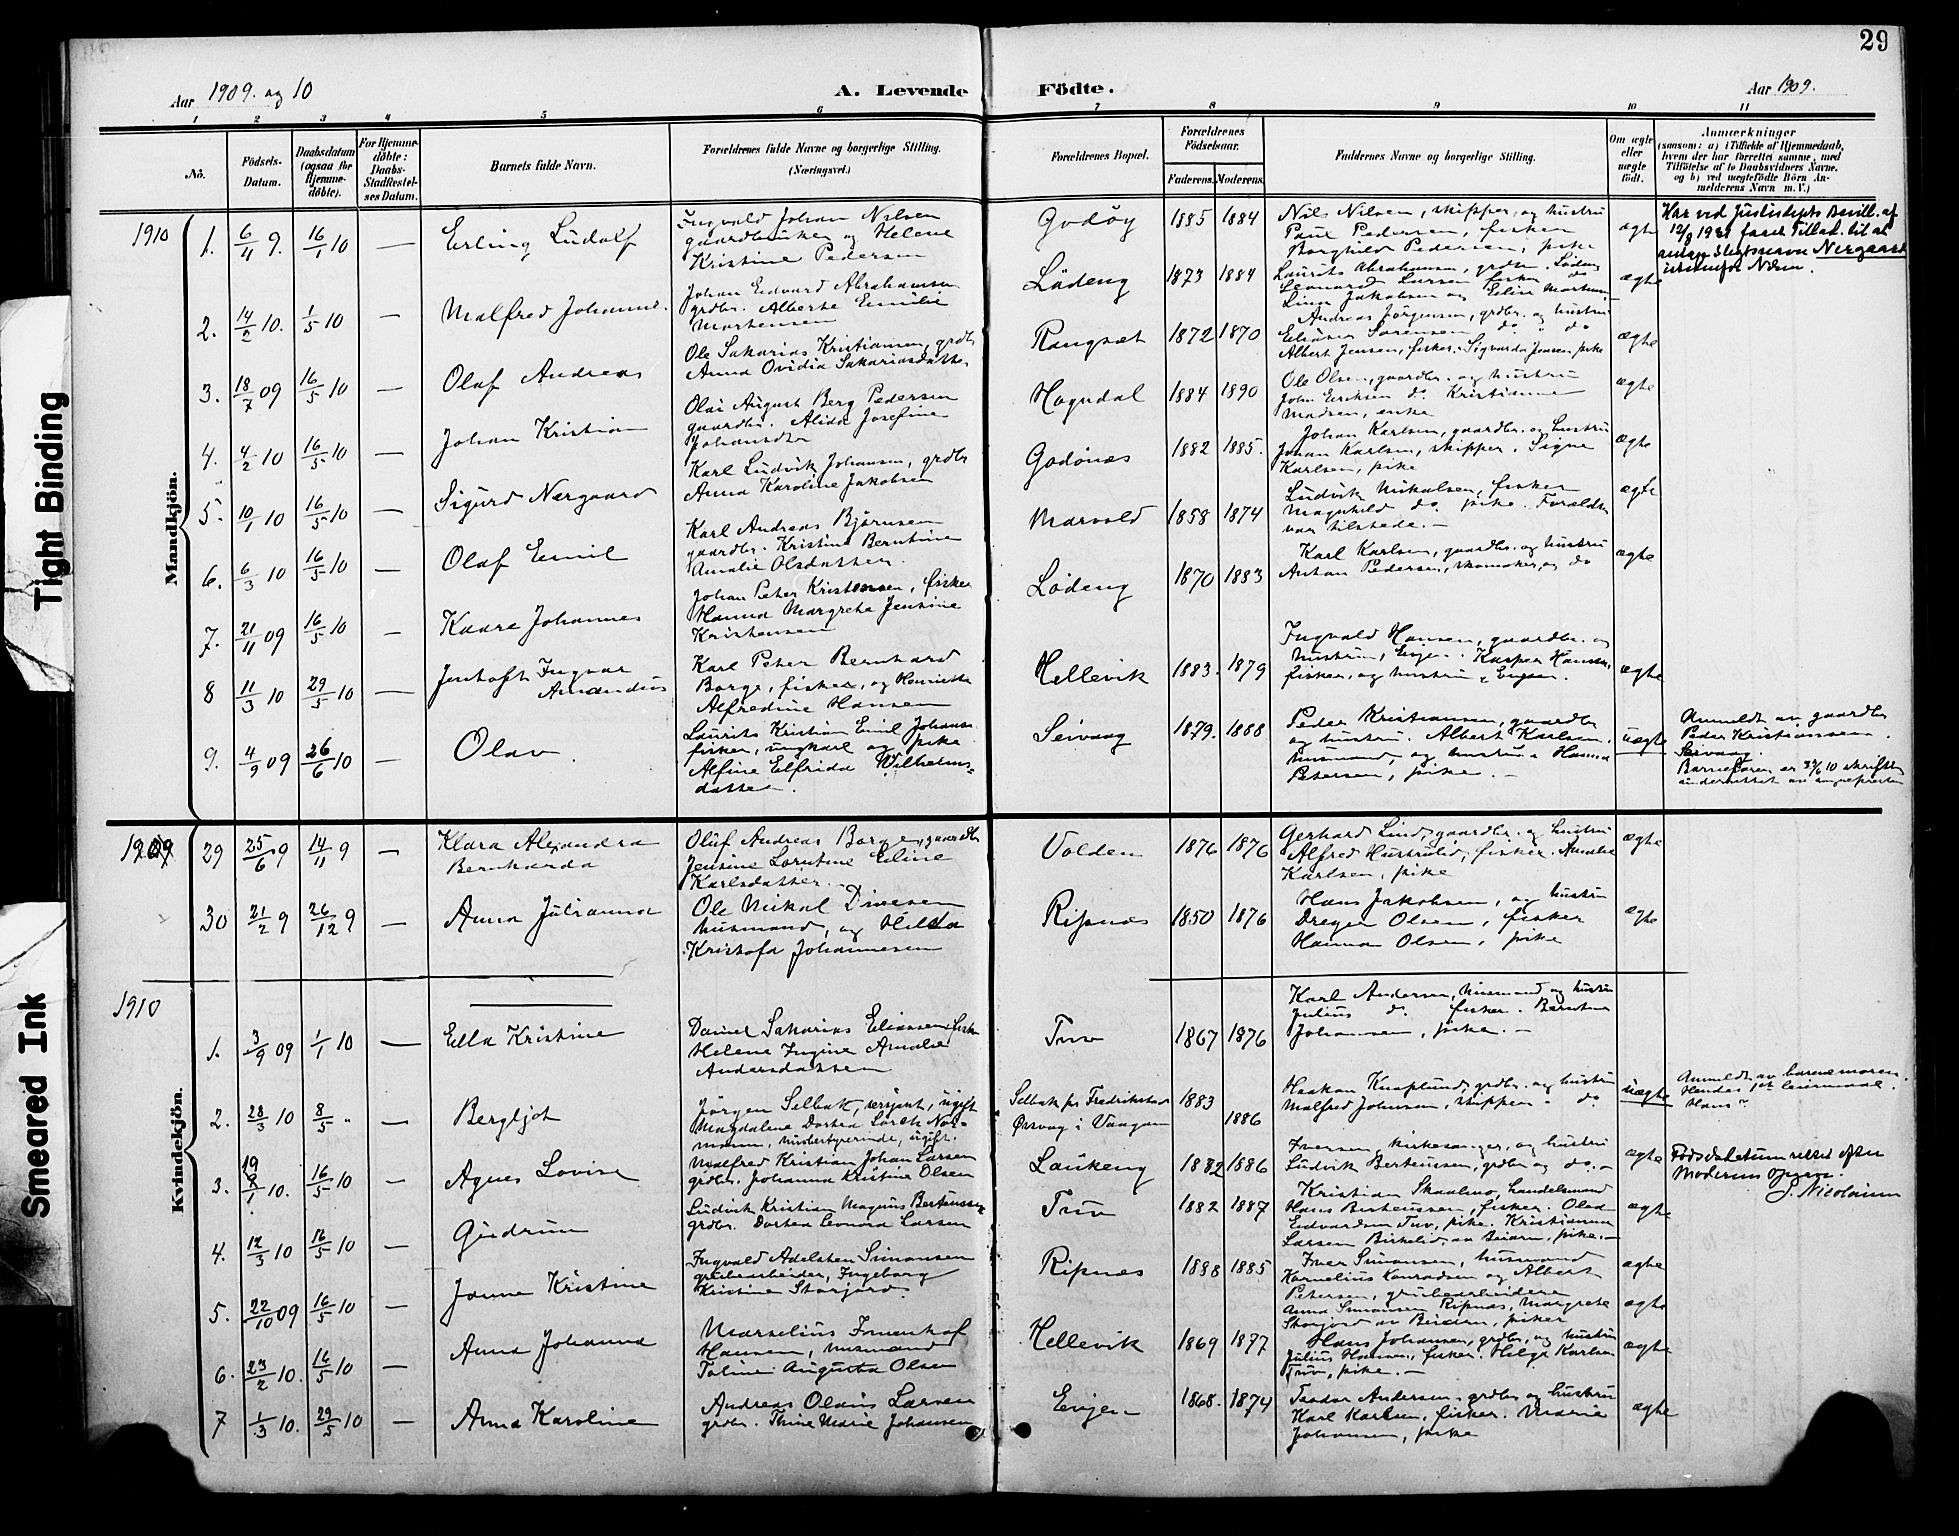 29
Aar 1909. og 10
A. Levende
Födte.
Aar 1909.
1 2 3 4 5 6 7 8 9 10 11
No.
Födsels-
Datum.
Daabsdatum
(ogsaa for
Hjemme-
döbte).
For Hjemme-
döbte:
Daabs-
Stadfæstel-
ses Datum.
Barnets fulde Navn.
Forældrenes fulde Navne og borgerlige Stilling.
(Næringsvei.)
Forældrenes Bopæl.
Forældrenes
Födselsaar.
Faderens. Moderens.
Faddernes Navne og borgerlige Stilling.
Om ægte
eller
uægte
födt.
Anmærkninger
(saasom: a) i Tilfælde af Hjemmedaab,
hvem der har forrettet samme, med
Tilföielse af to Daabsvidners Navne,
og b) ved uægtefödte Börn An-
melderens Navn m. V.)
Mandkjön.
1910
1. 6/4 9. 16/1 10 — Erling Ludolf
Ingvald Johan Nilsen
gaardbruker og Helene
Kristine Pedersen
Godöy 1885 1884
Nils Nilsen, skipper, og hustru
Paul Pedersen, fisker
Borghild Pedersen, pike
ægte
Har ved Justisdepts Bevill. af
antage Slegtsnavn Nergaard
istedenfor Nilsen.
2. 14/2 10. 1/5 10 — Malfred Johannes.
Johan Edvard Abrahamsen
grdbr. Alberte Emilie
Mortensen
Lödeng 1873 1884
Laurits Abrahamsen, grdbr. Löding
Leonard Larsen fisker do
Lina Jakobsen og Eline Mortensen
ægte
3. 18/7 09 16/5 10 — Olaf Andreas
Ole Sakarias Kristiansen, grdb.
Anna Ovidia Sakariasdatter
Rangsæt 1872 1870
Andreas Jörgensen, grdbr. og hustru
Sörensen do " do
Albert Jensen, fisker. Sigvarda Jensen pike
ægte
4. 4/2 10 16/5 10 — Johan Kristian
Olai August Berg Pedersen
gaardbr. Alida Josefine
Johansdtr
Hogndal 1884 1890
Ole Olsen, gaardbr. og hustru
John Eriksen do. Kristianne
Madsen, enke
ægte
5. 10/1 10 16/5 10 — Sigurd Nergaard
Karl Ludvik Johansen, grdbr
Anna Karoline Jakobsen
Godönes 1882 1885.
Johan Karlsen, gaardbr. og hustru
Johan Karlsen, skipper. Signe
Karlsen, pike
ægte
6. 6/3 10 16/5 10 — Olaf Emil
Karl Andreas Björnsen
gaardbr. Kristine Berntine
Amalie Olsdatter.
Marvold 1858 1874
Ludvik Nikolsen, fisker
Magnhild do, pike. Forældre
var tilstede. —
ægte
7. 21/11 09 16/5 10 — Kaare Johannes
Johan Peter Kristensen, fisker
Hanna Margrete Jensine
Kristensen
Lödeng 1870 1883
Karl Karlsen, gaardbr. og hustru
Anton Pedersen, skomaker, og do
ægte
8 11/3 10 29/5 10 — Jentoft Ingvar
Amandus
Karl Peter Bernhard
Borge, fisker, og Henriette
Alfredine Hansen
Hellevik 1883. 1879
Ingvald Hansen, gaardbr. og
hustru, Evjen. Kasper Hansen,
fisker, og hustru, Evjen.
ægte
9. 4/9 09 26/6 10 — Olav
Laurits Kristian Emil Johanse
fisker, ungkarl og pike
Alfine Elfrida Wilhelms-
datter.
Seivaag 1879. 1888
Peder Kristiansen, gaardbr
og hustru. Albert Karlsen.
husmand, og hustru. Hanna
Petersen, pike. —
uægte
Anmeldt av gaardbr
Peder Kristiansen.
Seivaag.
Barnefaren er 23/6 10 skriftlig
underrettet av sogneprester
Kvindekjön.
1909
29 25/6 9 14/11 9 — Klara Alexandra
Bernharda
Oluf Andreas Borge, gaardbr
Jensine Lorntine Eline
Karlsdatter.
Volden 1876 1876
Gerhard Lind, gaardbr. og hustru
Alfred Hustrulid, fisker. Amalie
Karlsen, pike
ægte
30 21/2 9 26/12 9 — Anna Julianna
Ole Nikal Dinesen
husmand, og Hilda
Kristofa Johannesen
Ripnæs 1850 1876
Hans Jakobsen, og hustru
Dreyer Olsen, fisker
Hanna Olsen, pike
ægte
1910
1. 3/9 09 1/1 10 — Ella Kristine
Daniel Sakarias Eliassen, fisk
Helene Ingine Amalie
Andersdatter
Tuv 1867 1876
Karl Andersen, husmand og hustru
Julius do. fisker. Berntine
Johansen, pike. —
2. 28/3 10 8/5 " — Bergljot
Jörgen Selbak, sersjant, ugift
Magdalene Dortea Lorck Nor-
mann, husbestyrerinde, ugift.
Selbak pr Fredrikstad
Örsvaag i Vaagan
1883
1886
Haakon Knaplund, grdbr. og hustru
Malfred Johnsen, skipper " do
uægte
Anmeldt av barnemoren.
Hendes 1st leiermaal.
Hans "
3. 19/1 10. 16/5 10 — Agnes Lovise
Malfred Kristian Johan Larsen
grdbr. Johanna Kristine Olsen
Laukeng 1882 1886
Iversen, kirkesanger, og hustru
Ludvik Berteussen, grdbr og do. —
ægte
Födselsdatum rettet efter
Moderens opgave.
S. Nicolaisen
4. 12/3 10 16/5 10 — Gudrun
Ludvik Kristian Magnus Berteussen
grdbr. Dortea Leonora Larsen
Tuv 1882 1887
Kristian Skaalmo, handelsmand
Hans Berteussen, fisker. Olea
Edvardsen Tuv, pike. Kristianna
Larsen Birkelid, av Beiarn, pike. —
ægte
5. 22/10 09 16/5 10 — Janne Kristine
Ingvald Adelsten Simonsen
grubearbeider, Ingeborg
Kristine Storjord.
Ripnæs 1888 1885
Iver Simonsen, husmand
Kornelius Konradsen og Albert
Petersen, grubearbeidere
Anna Simonsen Ripnæs, Margrete
Storjord av Beiarn, piker
ægte
ægte
6. 23/2 10. 16/5 10 — Anna Johanna
Marselius Fomenhof
Hansen, husmand
Toline Augusta Olsen
Hellevik 1869 1877
Hans Johansen, grdbr, og hustru
Julius Hansen, fisker. Helga Karlsen
Tuv, pike. —
ægte
7 1/3 10. 29/5 10 — Anna Karoline
Andreas Olaus Larsen
grdbr. Thine Marie Johansen
Evjen 1868. 1874
Teodor Andersen, grdbr og hustru
Karl Karlsen, fisker. Marie
Johansen, pike
ægte
Tight Binding
Smeared Ink